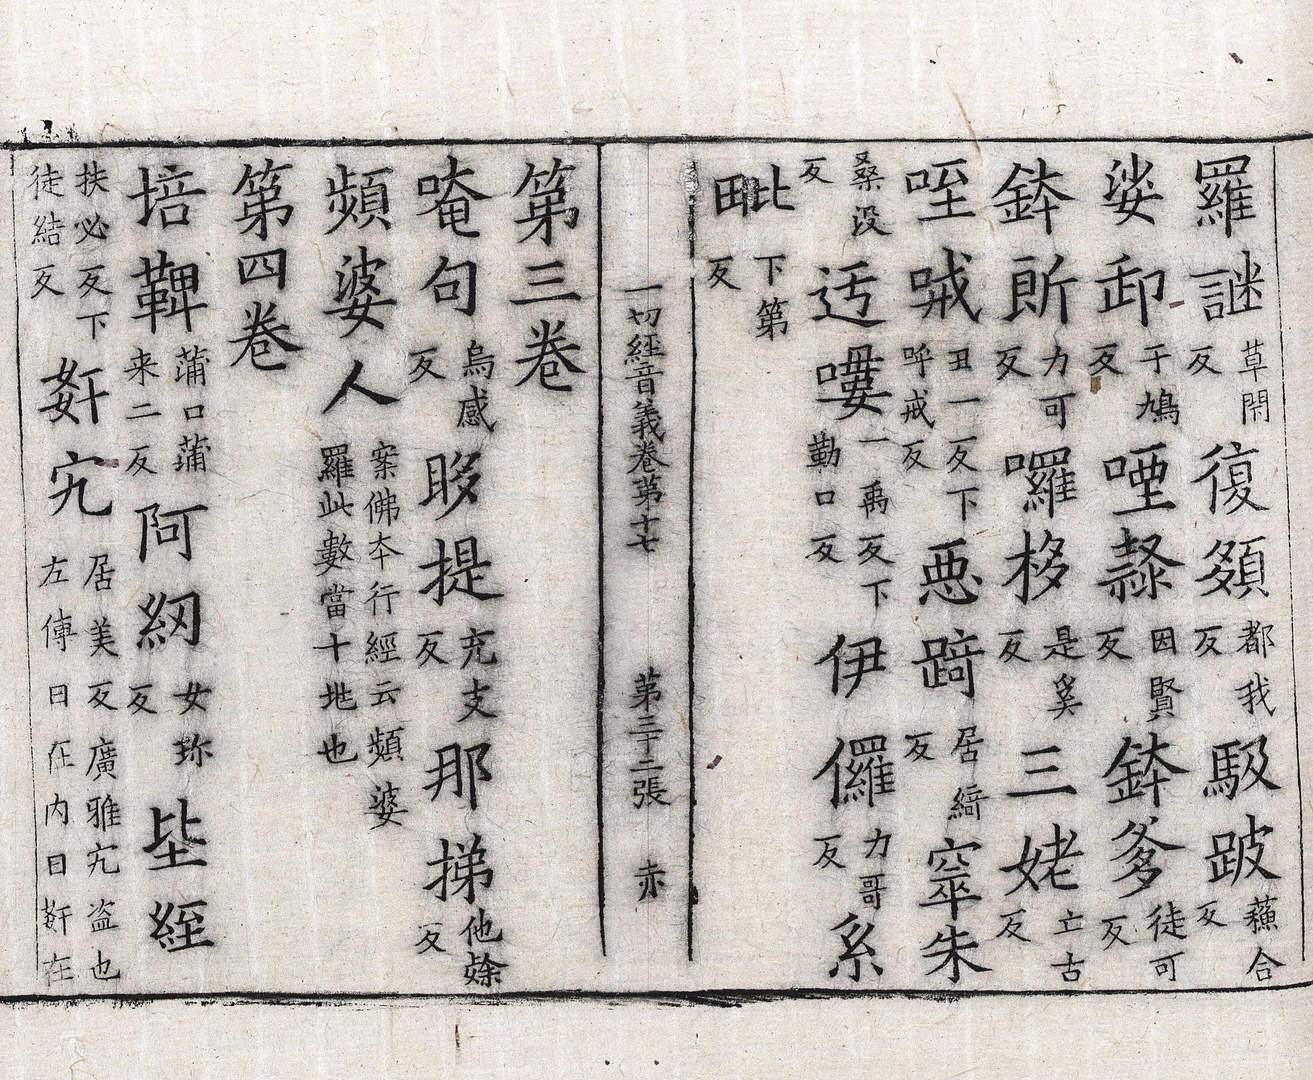 羅謎草閇反復頞都我反馺跛蘓合反
娑𨚗于鳩反喱隸因賢反鉢爹徒可反
鉢斦力可反囉栘是奚反三姥亡古反
咥㖑丑一反下呼戒反惡踦居綺反窣朱
桑没反迃㗻一禹反下勤口反伊儸力哥反系
毗下第反
一切經音義卷第十七 第三十二張 赤
第三卷
唵句烏感反眵提充支反那挮他㛮反
頻婆人案佛夲行經云頻婆羅此數當十地也
第四卷
培鞞蒲口蒲来二反阿㓞女珎反坒絰
扶必反下徒結反姧宄居美反廣雅宄盗也左傳曰在内曰姧在